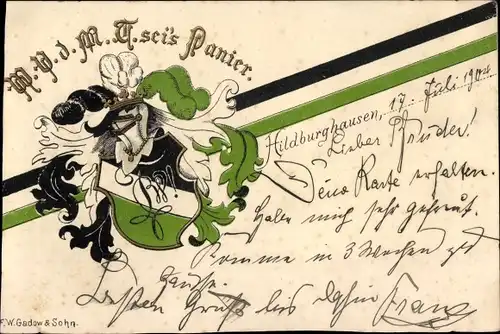 M. P. d. M. T. sei's Panier.
Hildburghausen, 17. Juli 1904
Lieber Bruder!
Deine Karte erhalten.
Habe mich sehr gefreut.
Komme in 3 Wochen
Hause.
Besten Gruß bis dahin Franz
F.W. Gadow & Sohn.